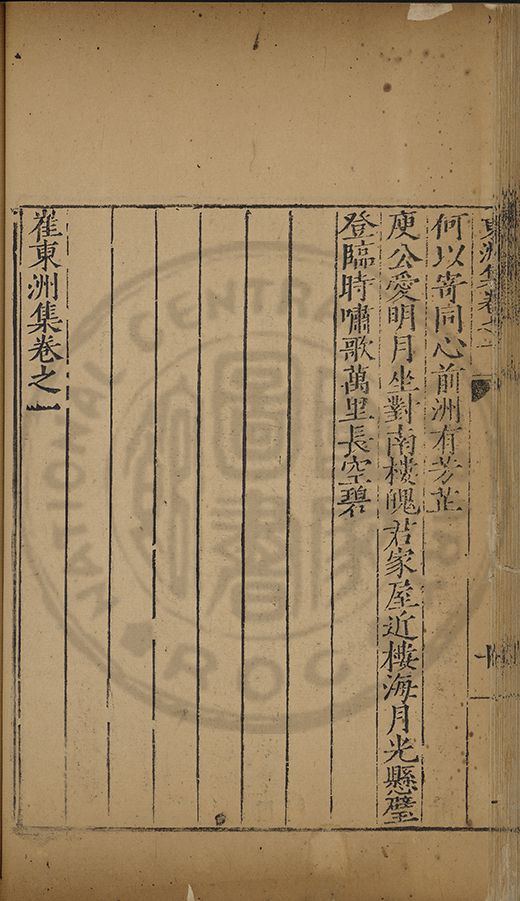 東洲集卷之一
十
何以寄同心前洲有芳芷
庾公愛明月坐對南樓魄君家屋近樓海月光懸璧
登臨時嘯歌萬里長空碧
崔東洲集卷之一